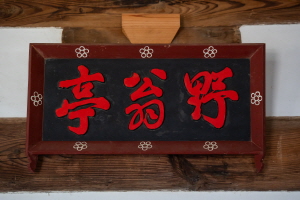 野翁亭